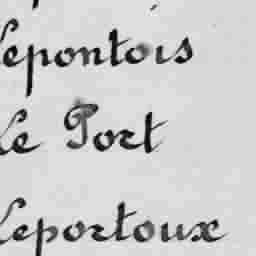 Lepontois
Le Port
Leportoux